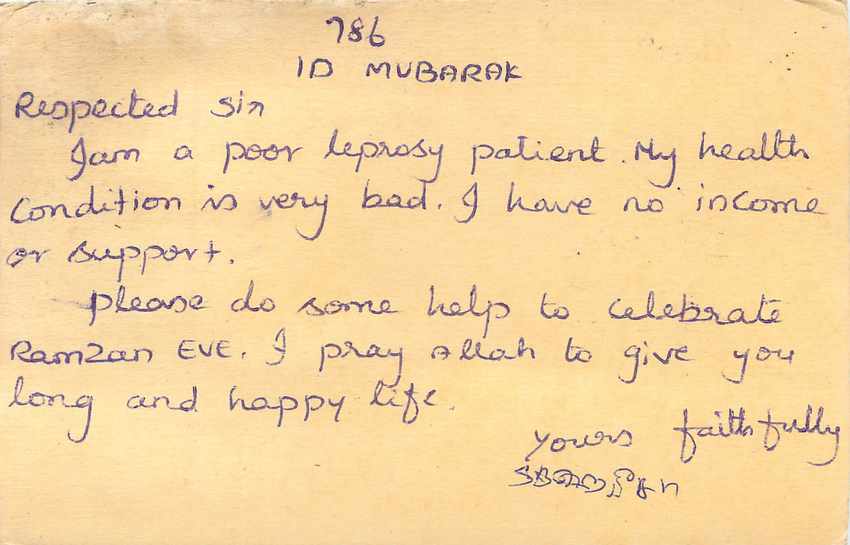 786
ID MUBARAK
Respected Sir
I am a poor leprosy patient. My health
condition is very bad. I have no income
or support.
please do some help to celebrate
Ramzan EVE. I pray Allah to give you
long and happy life.
yours faithfully